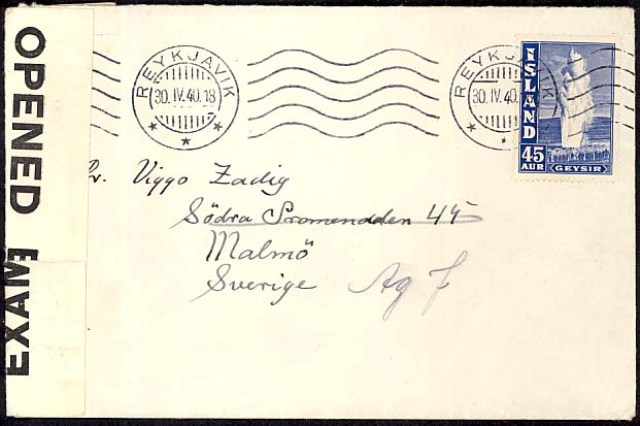 OPENED
EXAM
REYKJAVIK
30. IV. 40. 18
REYKJAVIK
30. IV. 40.
ÍSLAND
45
AUR
GEYSIR
Viggo Zadig
Södra Promenaden 45
Malmö
Sverige